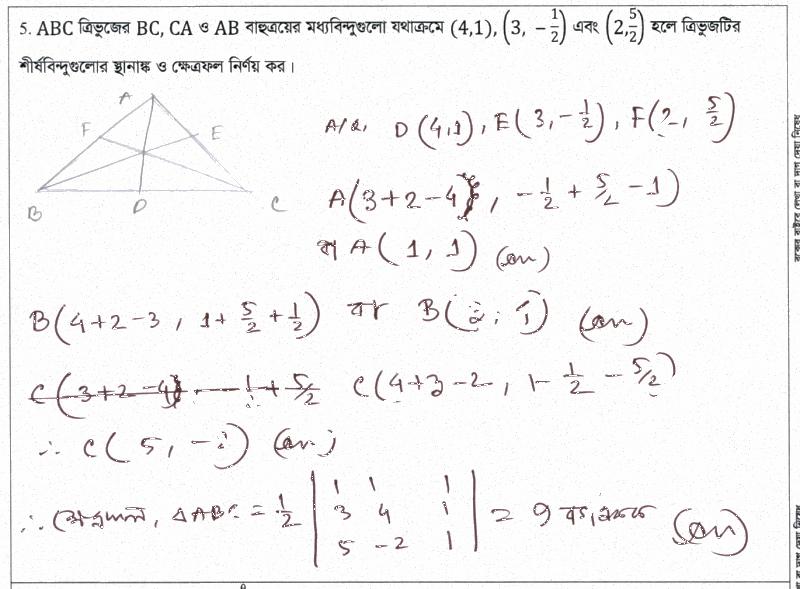 5. ABC ত্রিভুজের BC, CA ও AB বাহুত্রয়ের মধ্যবিন্দুগুলো যথাক্রমে (4,1), (3, -1/2) এবং (2, 5/2) হলে ত্রিভুজটির
শীর্ষবিন্দুগুলোর স্থানাঙ্ক ও ক্ষেত্রফল নির্ণয় কর।
A
F E
B D C
D(4,1), E(3, -1/2), F(2, 5/2)
A(3+2-4, -1/2 + 5/2 - 1)
বা A(1, 1) (an)
B(4+2-3, 1+ 5/2 + 1/2) বা B( (an)
C(3+2-4 C(4+3-2, 1- 1/2 - 5/2)
∴ C(5, -2) (an)
∴ ক্ষেত্রফল, ΔABC = 1/2 | 1 1 1
3 4 1
5 -2 1 | = 9 (an)